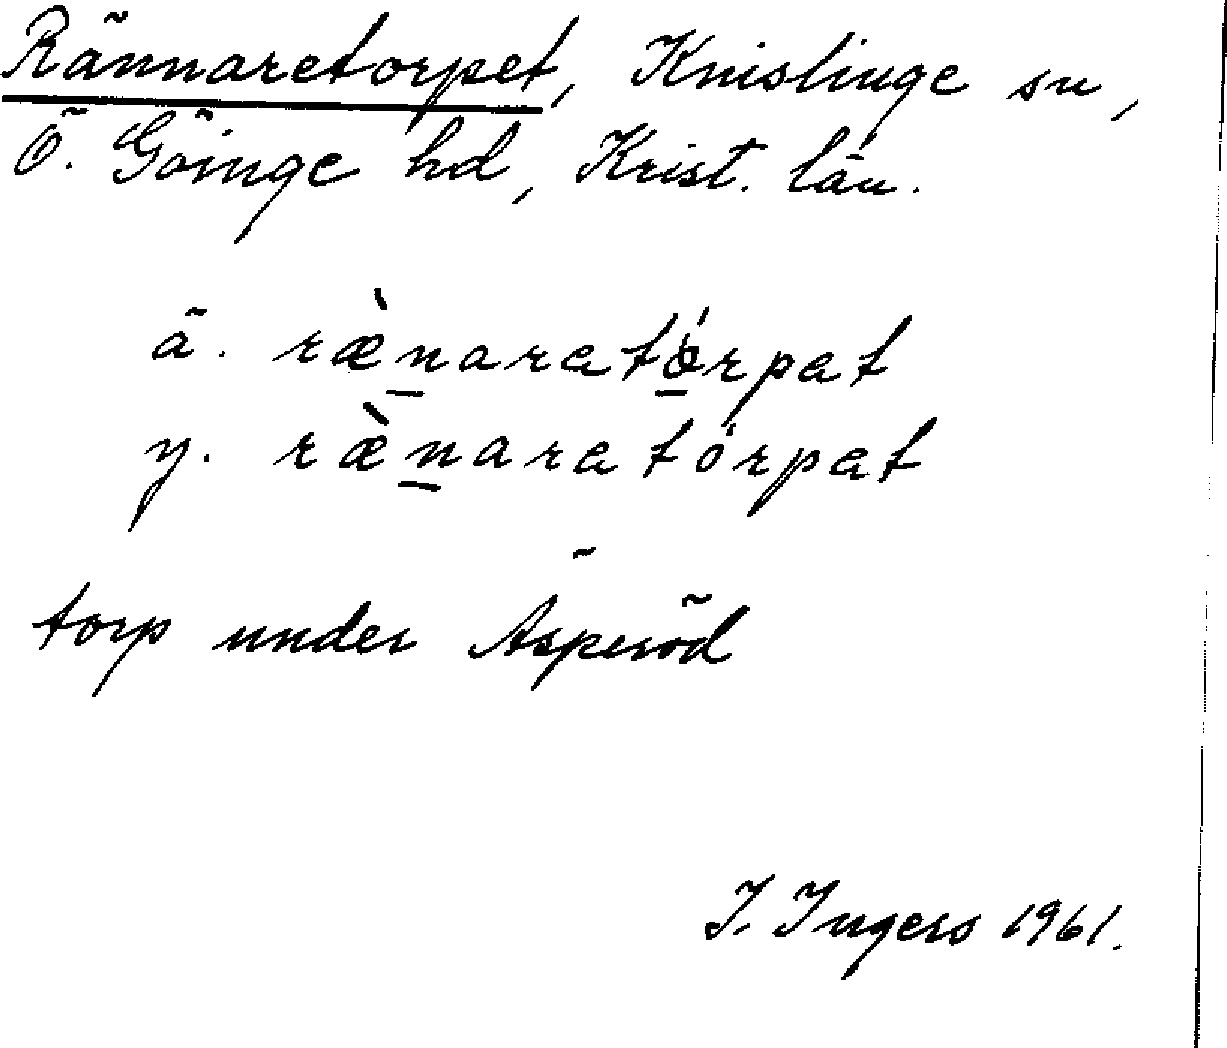 Rännaretorpet, Knislinge sn,
Ö. Göinge hd, Krist. län.
ä. ræ̀n̲aratǿ̲rpat
y. ræ̀n̲aratörpat
torp under Åsperöd
I. Ingers 1961.